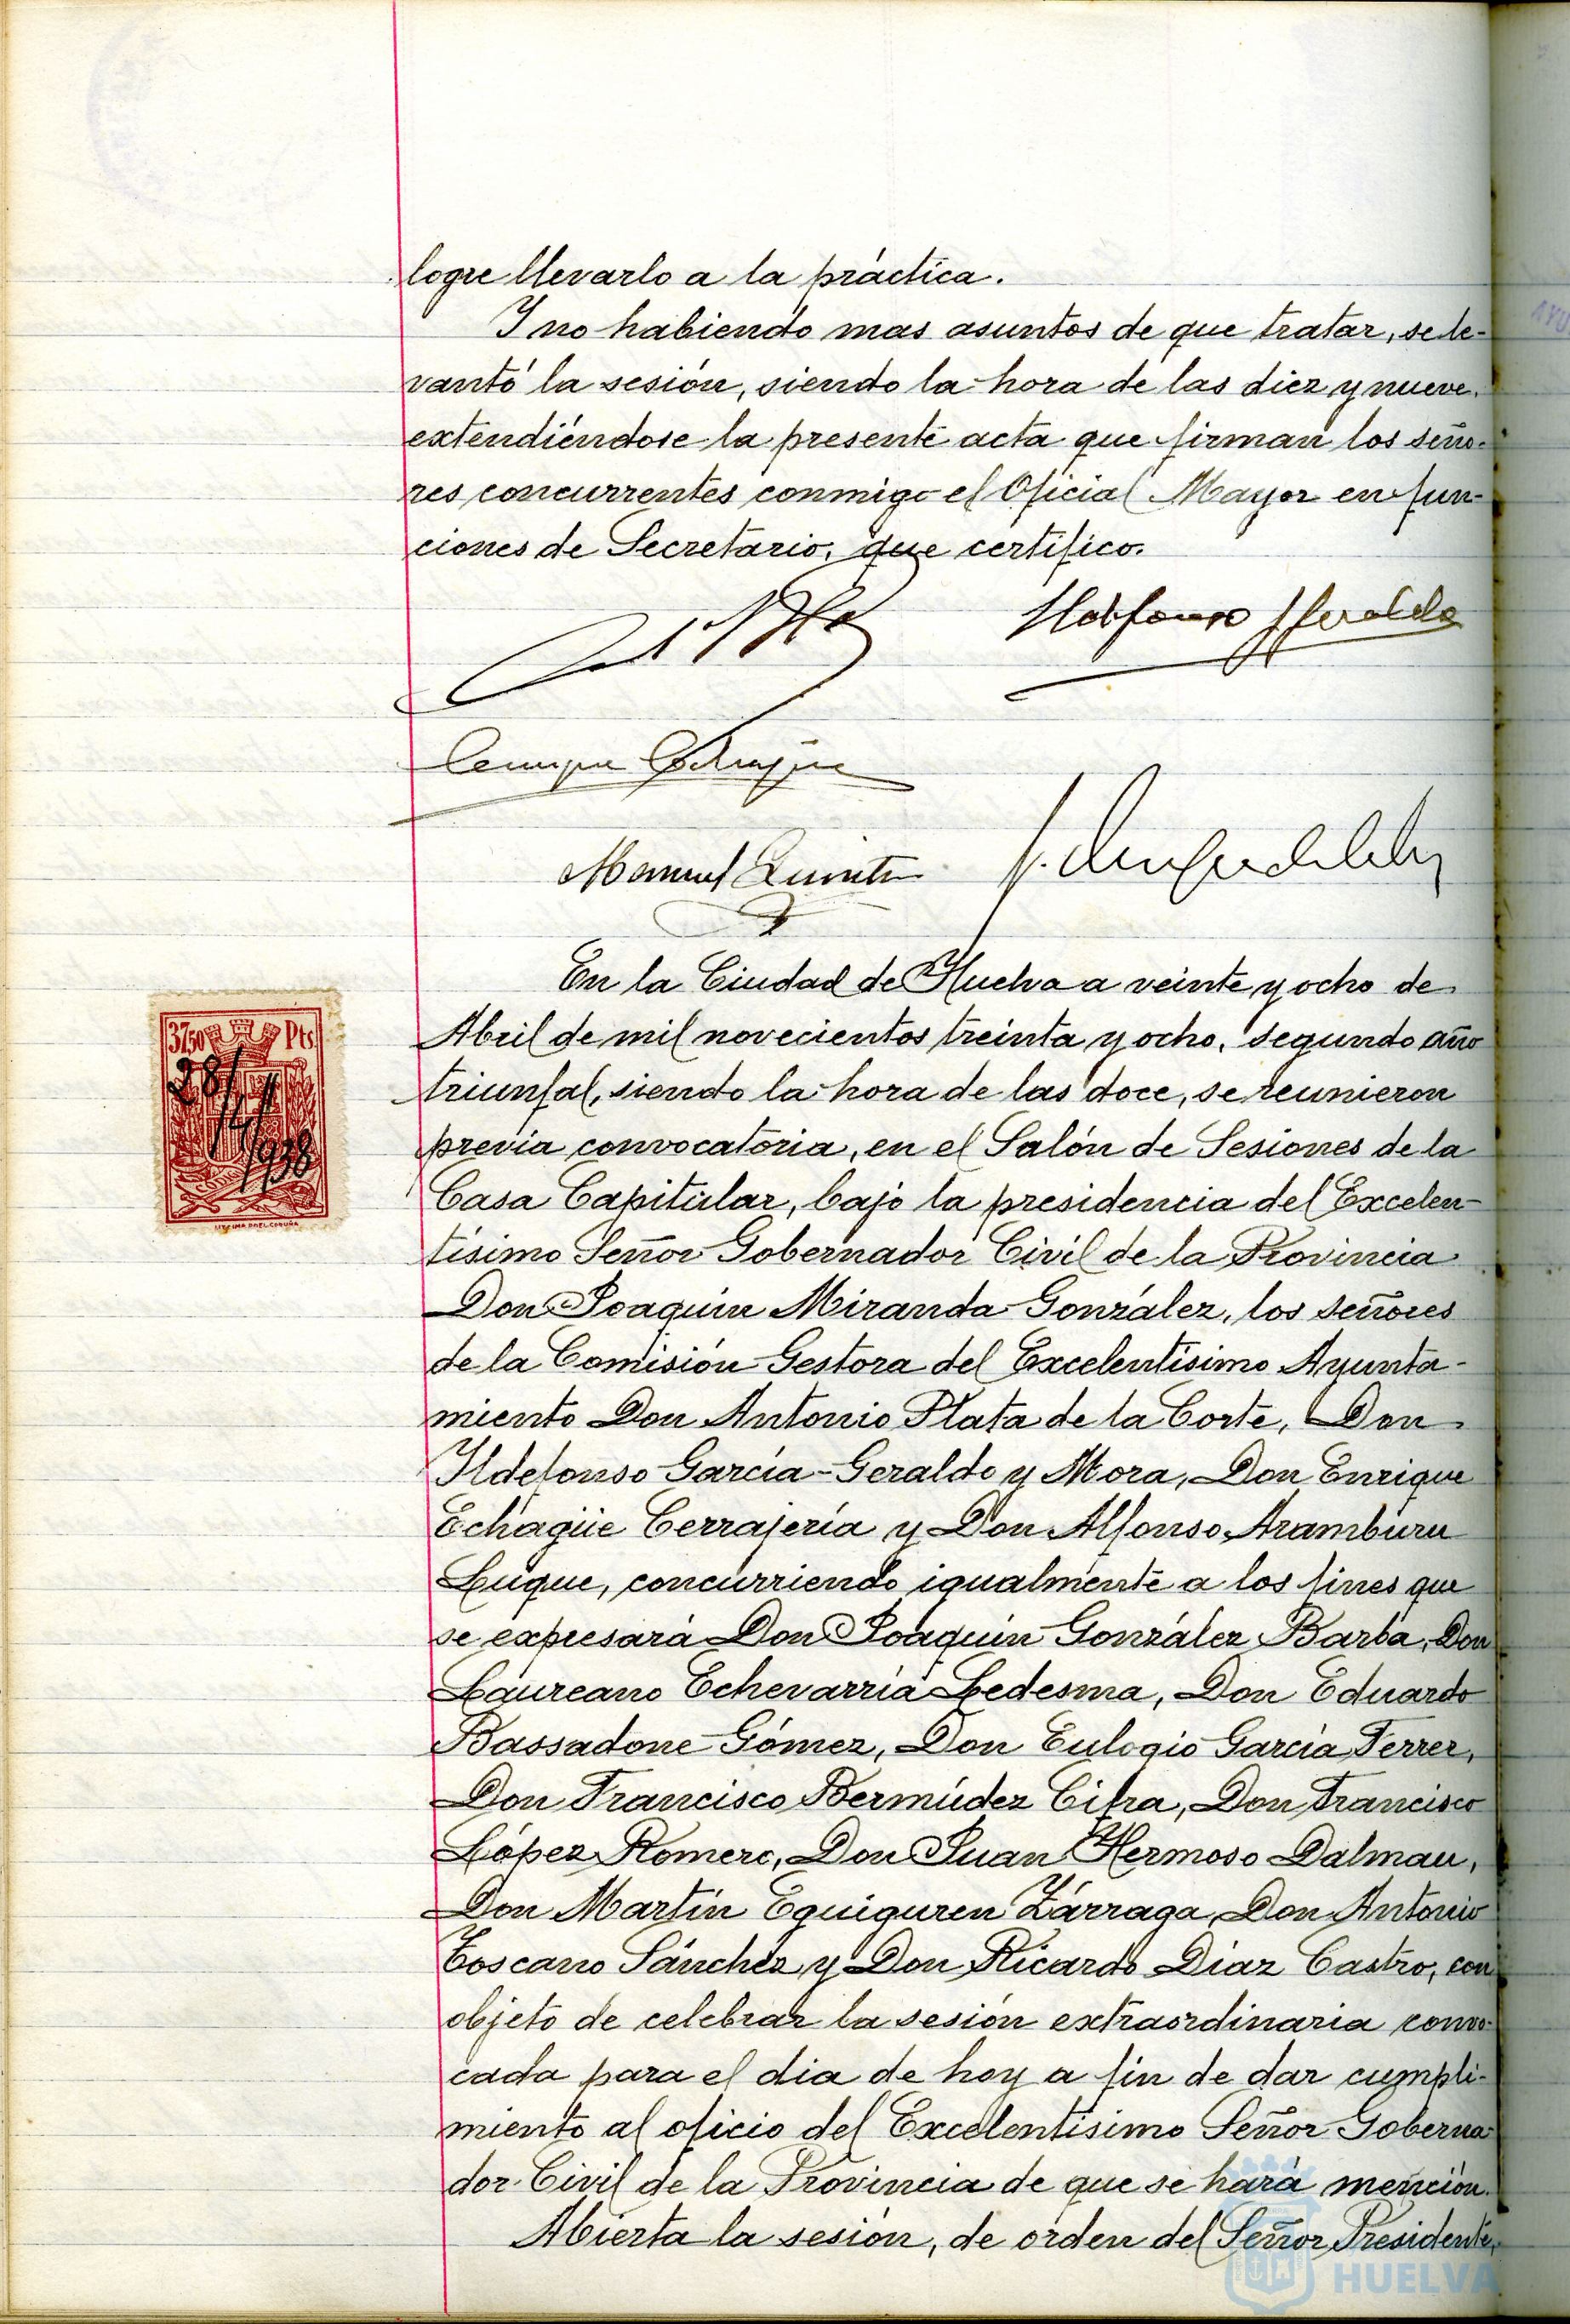 logre llevarlo a la práctica.
Y no habiendo mas asuntos de que tratar, se le-
vantó la sesión, siendo la hora de las diez y nueve,
extendiéndose la presente acta que firman los seño-
res concurrentes conmigo el Oficial Mayor en fun-
ciones de Secretario, que certifico.
Ildefonso Geraldo
Enrique Echagüe
Manuel
En la Ciudad de Huelva a veinte y ocho de
37,50 Pts.
28/4/1938
Abril de mil novecientos treinta y ocho, segundo año
triunfal, siendo la hora de las doce, se reunieron
previa convocatoria, en el Salón de Sesiones de la
Casa Capitular, bajo la presidencia del Excelen-
tísimo Señor Gobernador Civil de la Provincia
Don Joaquin Miranda González, los señores
de la Comisión Gestora del Excelentísimo Ayunta-
miento Don Antonio Plata de la Corte, Don
Ildefonso García-Geraldo y Mora, Don Enrique
Echagüe Cerrajería y Don Alfonso Aramburu
Luque, concurriendo igualmente a los fines que
se expresará Don Joaquín González Barba, Don
Laureano Echevarría Ledesma, Don Eduardo
Bassadone Gómez, Don Eulogio García Ferrer,
Don Francisco Bermúdez Cifra, Don Francisco
López Romero, Don Juan Hermoso Dalmau,
Don Martín Eguiguren Zárraga, Don Antonio
Toscano Sánchez y Don Ricardo Díaz Castro, con
objeto de celebrar la sesión extraordinaria convo-
cada para el dia de hoy a fin de dar cumpli-
miento al oficio del Excelentísimo Señor Goberna-
dor Civil de la Provincia de que se hará mención.
Abierta la sesión, de orden del Señor Presidente,
HUELVA